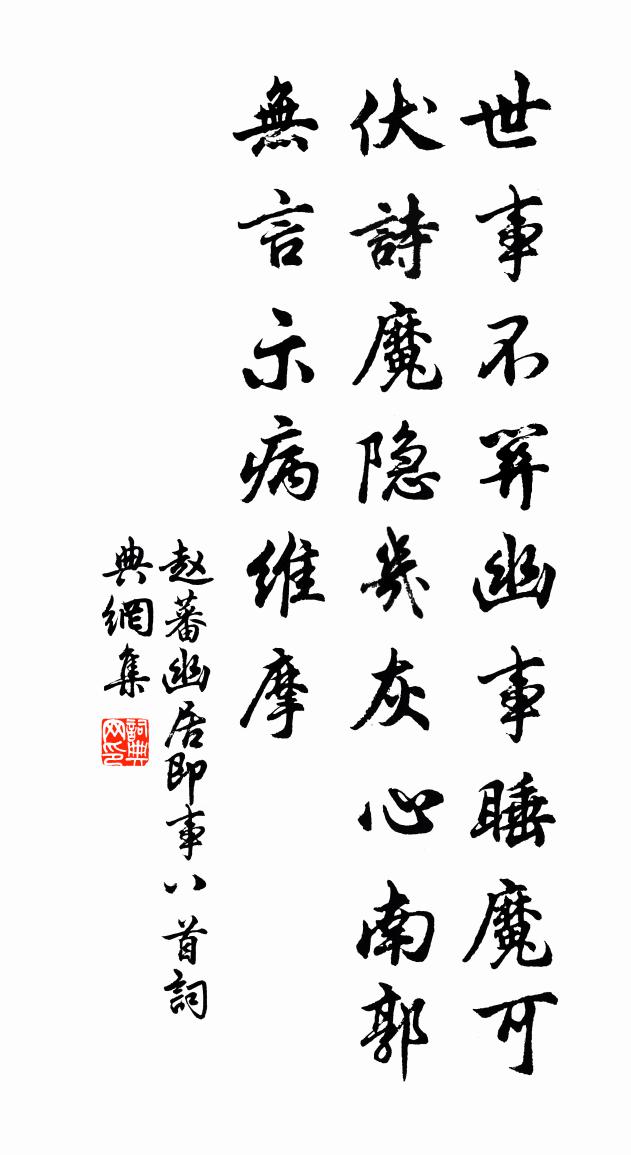 世事不幽事睡魔可
伏詩魔隐幾灰心南郭
無言示病維摩
赵蕃幽居即事八首詞
典網集
詞典
网印